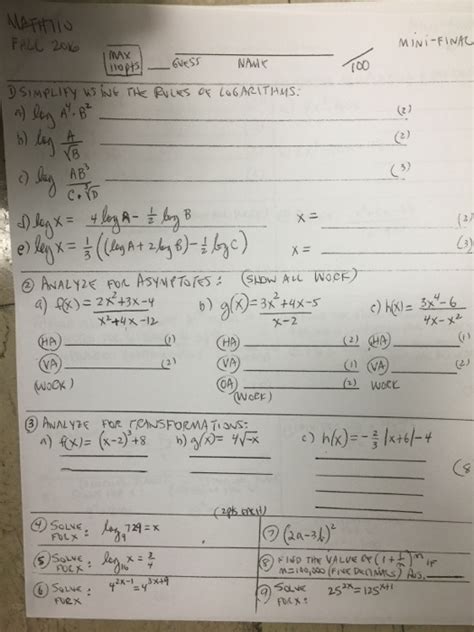 MATH110
FALL 2016 MAX 110pts GUESS NAME /100 MINI-FINAL
1) SIMPLIFY USING THE RULES OF LOGARITHMS:
a) log A⁴·B² (2)
b) log A/√B (2)
c) log AB³/C·∛D (3)
d) log x = 4 log A - 1/2 log B x = (3)
e) log x = 1/3 ((log A + 2 log B) - 1/2 log C) x = (3)
② ANALYZE FOR ASYMPTOTES: (SHOW ALL WORK)
a) f(x) = 2x²+3x-4/x²+4x-12 b) g(x) = 3x²+4x-5/x-2 c) h(x) = 3x⁴-6/4x-x²
HA (1) HA (2) HA (1)
VA (2) VA (1) VA (2)
(WORK) OA (2) WORK
(WORK)
③ ANALYZE FOR TRANSFORMATIONS:
a) f(x) = (x-2)³+8 b) g(x) = 4√-x c) h(x) = -2/3 |x+6| -4
(8
(2pts EACH)
④ SOLVE FOR X: log₉ 729 = x ⑦ (2a-3b)²
⑤ SOLVE FOR X: log₁₆ x = 3/4 ⑧ FIND THE VALUE OF (1+1/n)ⁿ IF
n=100,000 (FIVE DECIMALS) ANS.
⑥ SOLVE FOR X 4^2x-1 = 4^3x+29 ⑨ SOLVE FOR X: 25^2x = 125^x+1